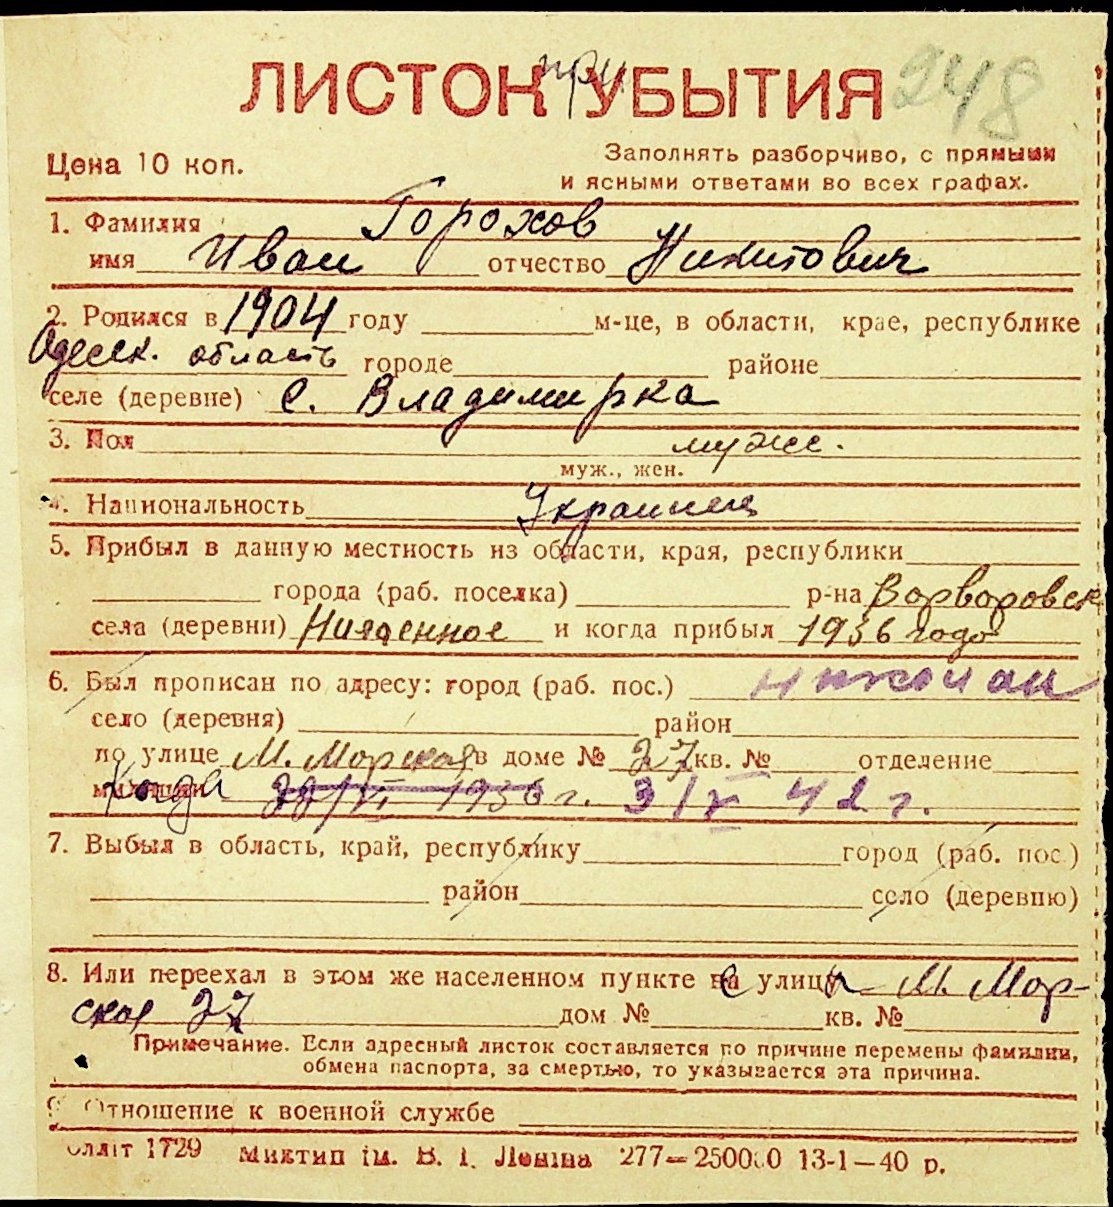 ЛИСТОК при УБЫТИЯ 248
Цена 10 коп.
Заполнять разборчиво, с прямыми
и ясными ответами во всех графах.
1. Фамилия Горохов
имя Иван отчество Никитович
2. Родился в 1904 году м-це, в области, крае, республике
Одесск. область городе районе
селе (деревне) с. Владимирка
3. Пол мужс.
муж., жен.
4. Национальность Украинец
5. Прибыл в данную местность из области, края, республики
города (раб. поселка) р-на Ворваровск
села (деревни) и когда прибыл 1936 года
6. Был прописан по адресу: город (раб. пос.) Николаи
село (деревня) район
по улице М. Морская в доме № 27 кв. № отделение
милиции когда 22/VI 1936 г. 3/V 42 г.
7. Выбыл в область, край, республику город (раб. пос.)
район село (деревню)
8. Или переехал в этом же населенном пункте с улицы М. Мор-
ской 27 дом № кв. №
Примечание. Если адресный листок составляется по причине перемены фамилии,
обмена паспорта, за смертью, то указывается эта причина.
9. Отношение к военной службе
Оллiт 1729 Миктип iм. В. I. Ленiна 277—250000 13-1—40 р.